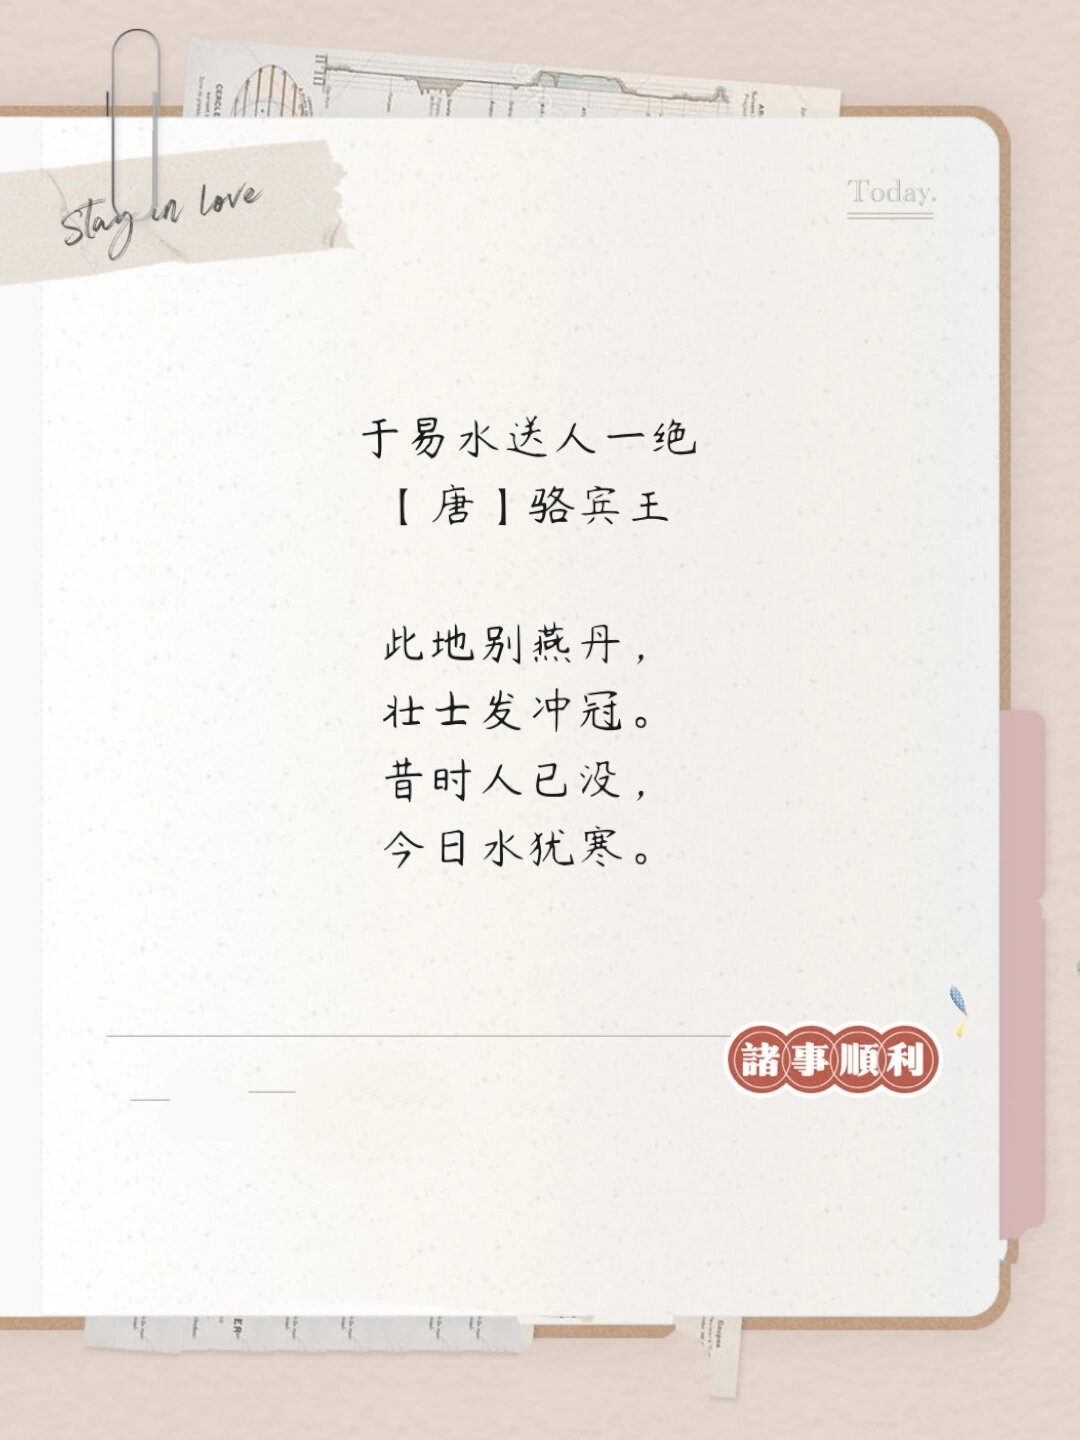 Stay in love
Today.
于易水送人一绝
【唐】骆宾王
此地别燕丹，
壮士发冲冠。
昔时人已没，
今日水犹寒。
諸事順利